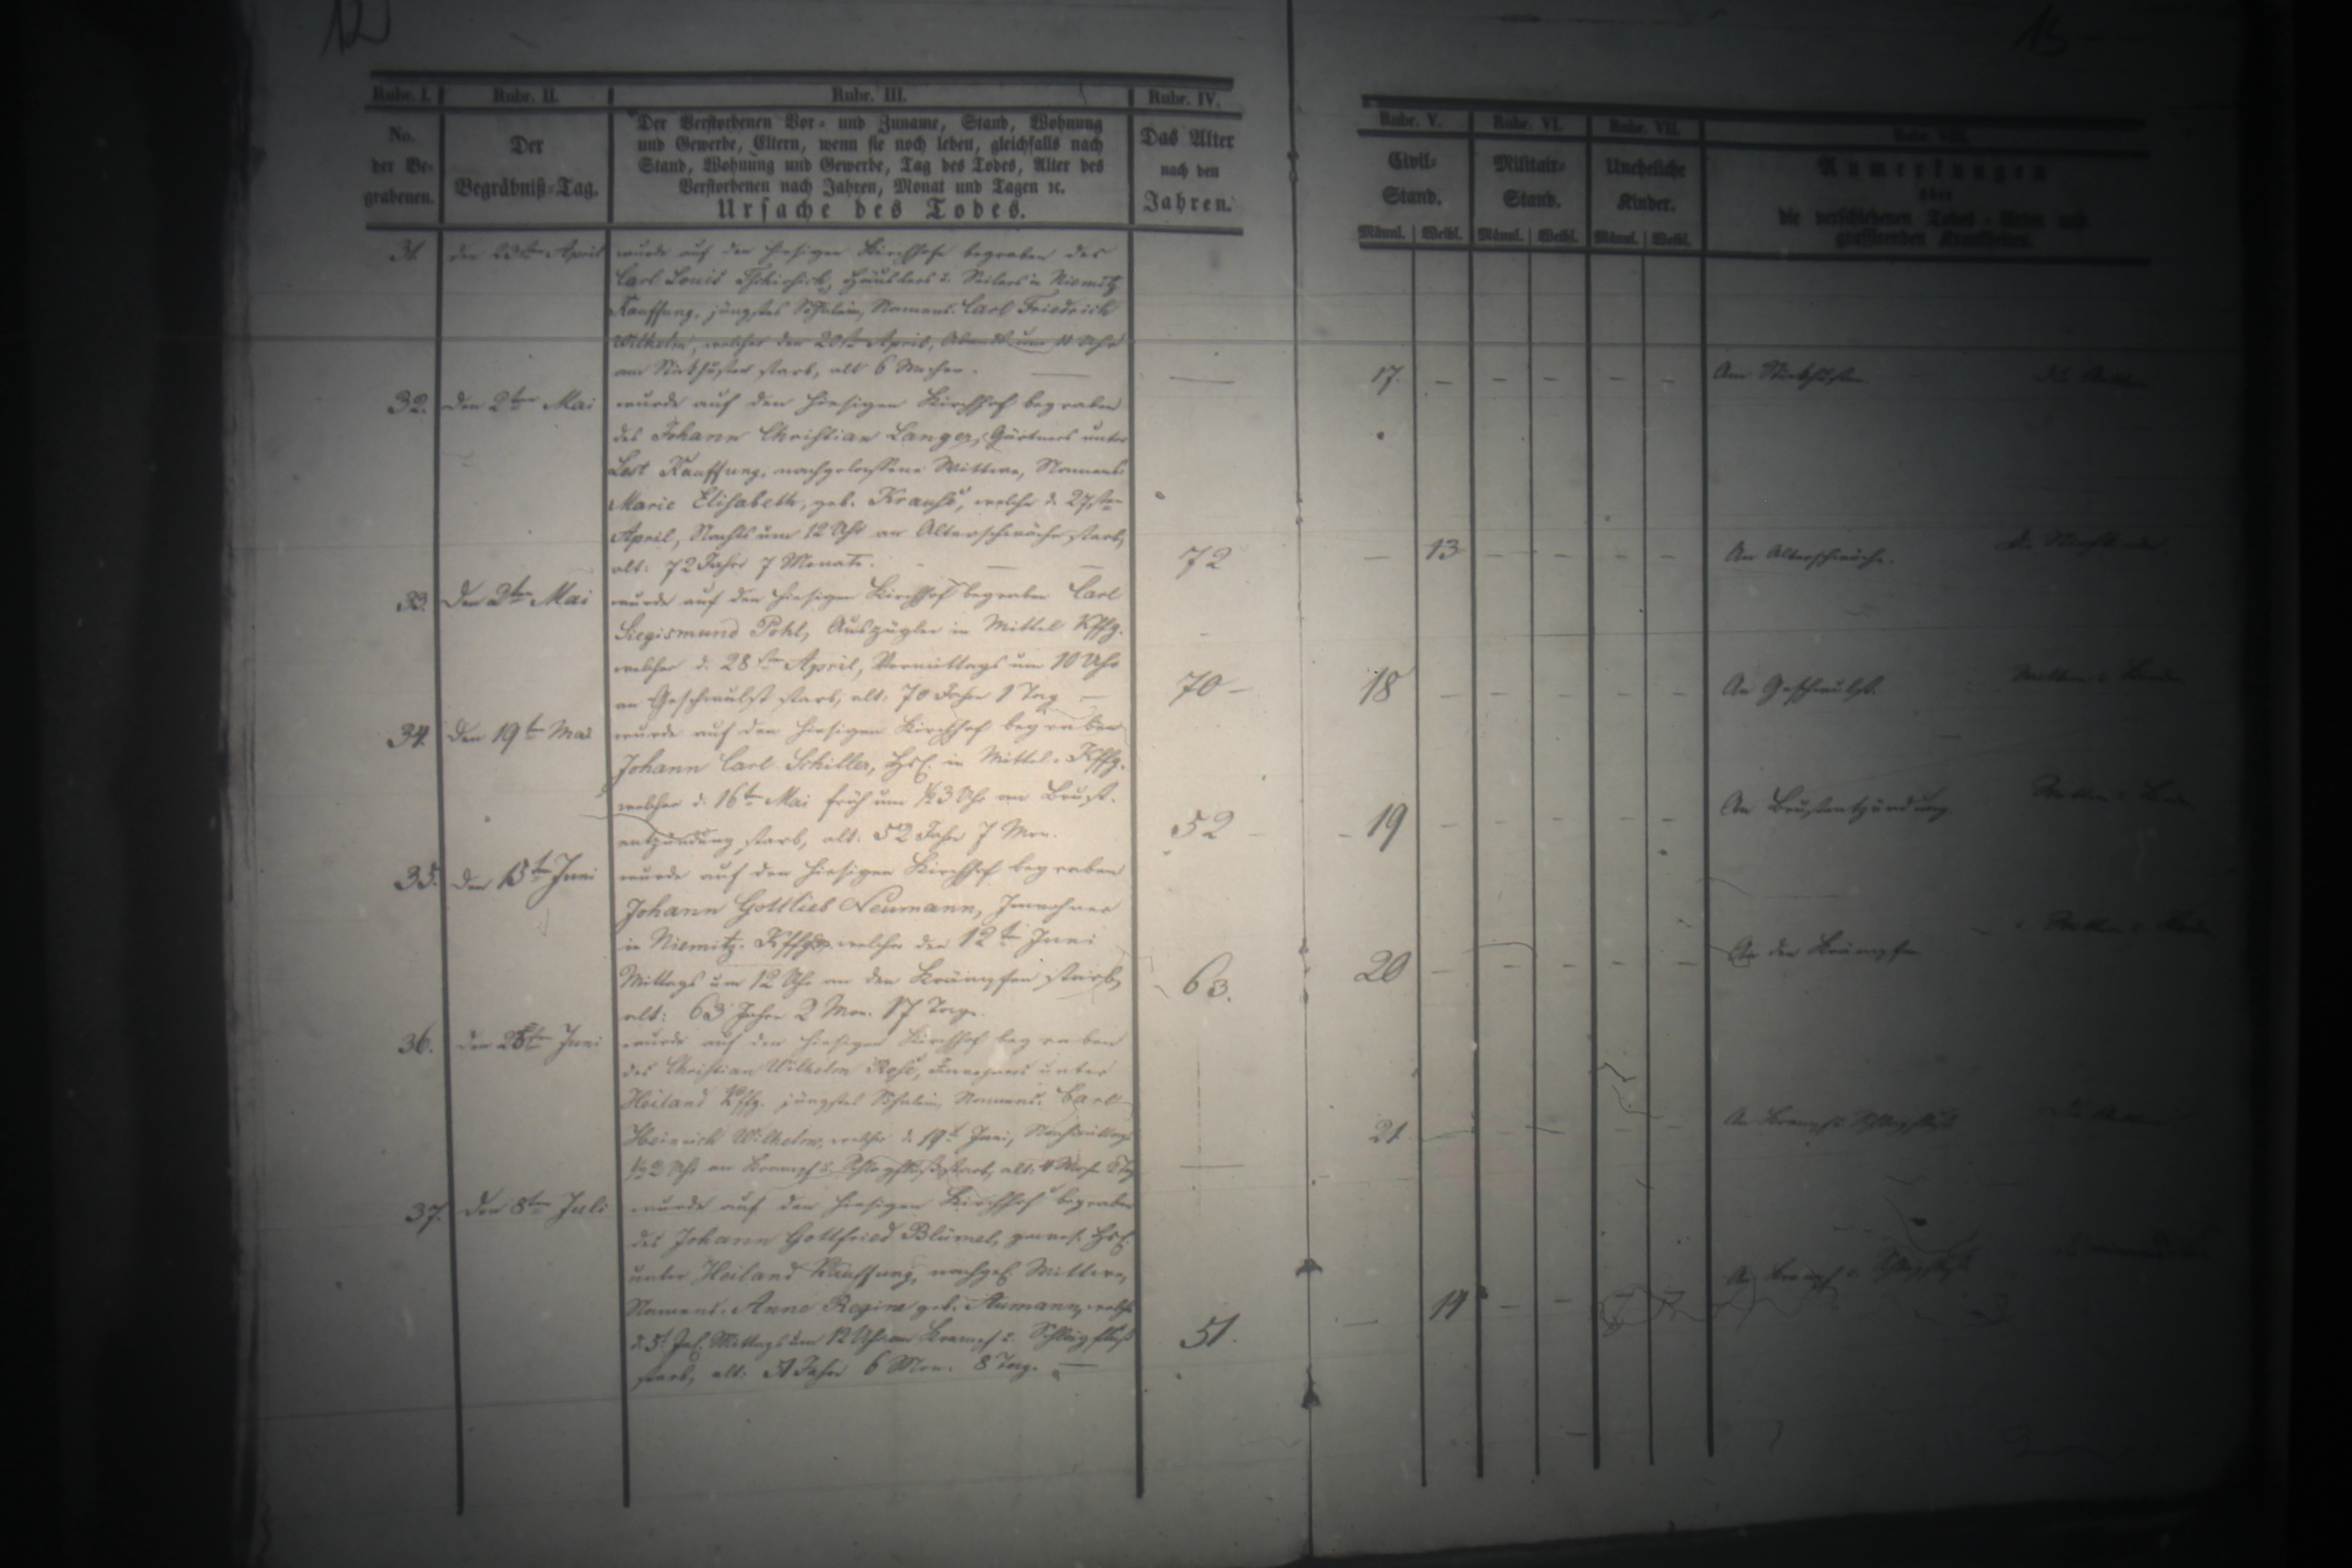 12
13
Rubr. I. Rubr. II. Rubr. III. Rubr. IV. Rubr. V. Rubr. VI. Rubr. VII. Rubr. VIII.
No. der Be- grabenen.
Der Begräbniß-Tag.
Der Verstorbenen Vor- und Zuname, Stand, Wohnung
und Gewerbe, Eltern, wenn sie noch leben, gleichfalls nach
Stand, Wohnung und Gewerbe, Tag des Todes, Alter des
Verstorbenen nach Jahren, Monat und Tagen ꝛc.
Ursache des Todes.
Das Alter nach den Jahren.
Civil- Stand.
Militair- Stand.
Uneheliche Kinder.
Anmerkungen
über
die verschiedenen Todes-Arten und
grassirenden Krankheiten.
Männl. Weibl. Männl. Weibl. Männl. Weibl.
31. den 23ten April wurde auf den hiesigen Kirchhofe begraben des
Carl Louis Häuslers u. Seilers in Niemitz
Kauffung, jüngstes Söhnlein, Namens: Carl Friedrich
Wilhelm, welcher den 20ten April, Abends um 11 Uhr
am Stickhusten starb, alt 6 Wochen. — — 17. – – – – – Am Stickhusten
32. den 2ten Mai wurde auf den hiesigen Kirchhof begraben
des Johann Christian Langer, Gärtners unter
Lest Kauffung, nachgelassene Wittwe, Namens:
Marie Elisabeth, geb. welche d. 27sten
April, Nachts um 12 Uhr an Altersschwäche starb,
alt: 72 Jahre 7 Monate. 72 – 13 – – – – An Altersschwäche.
33. den 2ten Mai wurde auf den hiesigen Kirchhof begraben Carl
Siegismund Pohl, Auszügler in Mittel Kffg.
welcher d. 28sten April, Vormittags um 10 Uhr
an Geschwulst starb, alt: 70 Jahre 1 Tag — 70 – 18 – – – – – An Geschwulst.
34. den 19ten Mai wurde auf den hiesigen Kirchhof begraben
Johann Carl Schiller, Hsl. in Mittel-Kffg.
welcher d. 16ten Mai früh um ½3 Uhr an Brust-
entzündung starb, alt: 52 Jahre 7 Mon. 52 – 19 – – – – – An Brustentzündung.
35. den 15t Juni wurde auf den hiesigen Kirchhof begraben
Johann Gottlieb Neumann, Inwohner
in Niemitz-Kffg. welcher den 12t Juni
Mittags um 12 Uhr an den Krämpfen starb,
alt: 63 Jahre 2 Mon. 17 Tage. 63. 20 – – – – – An den Krämpfen
36. den Juni wurde auf den hiesigen Kirchhof begraben
des Christian Wilhelm Inwohners unter
Heiland Kffg. jüngstes Söhnlein, Namens: Carl
Heinrich Wilhelm, welcher d. 19t Juni, Nachmittags
Uhr an Krampf u. Schlagfluß starb, alt: 4 — 21 – – – – – An Krampf u. Schlagfluß
37. den 8ten Juli wurde auf den hiesigen Kirchhof begraben
des Johann Gottfried Blümel, gewes. Hsl.
unter Heiland Kauffung, nachgel. Wittwe,
Namens: Anne Regine geb. Aumann, welche
d. 5t Jul. Mittags um 12 Uhr an Krampf u. Schlagfluß
starb, alt: 51 Jahre 6 Mon. 8 Tag. — 51. – 14 – – – – An Krampf u. Schlagfluß